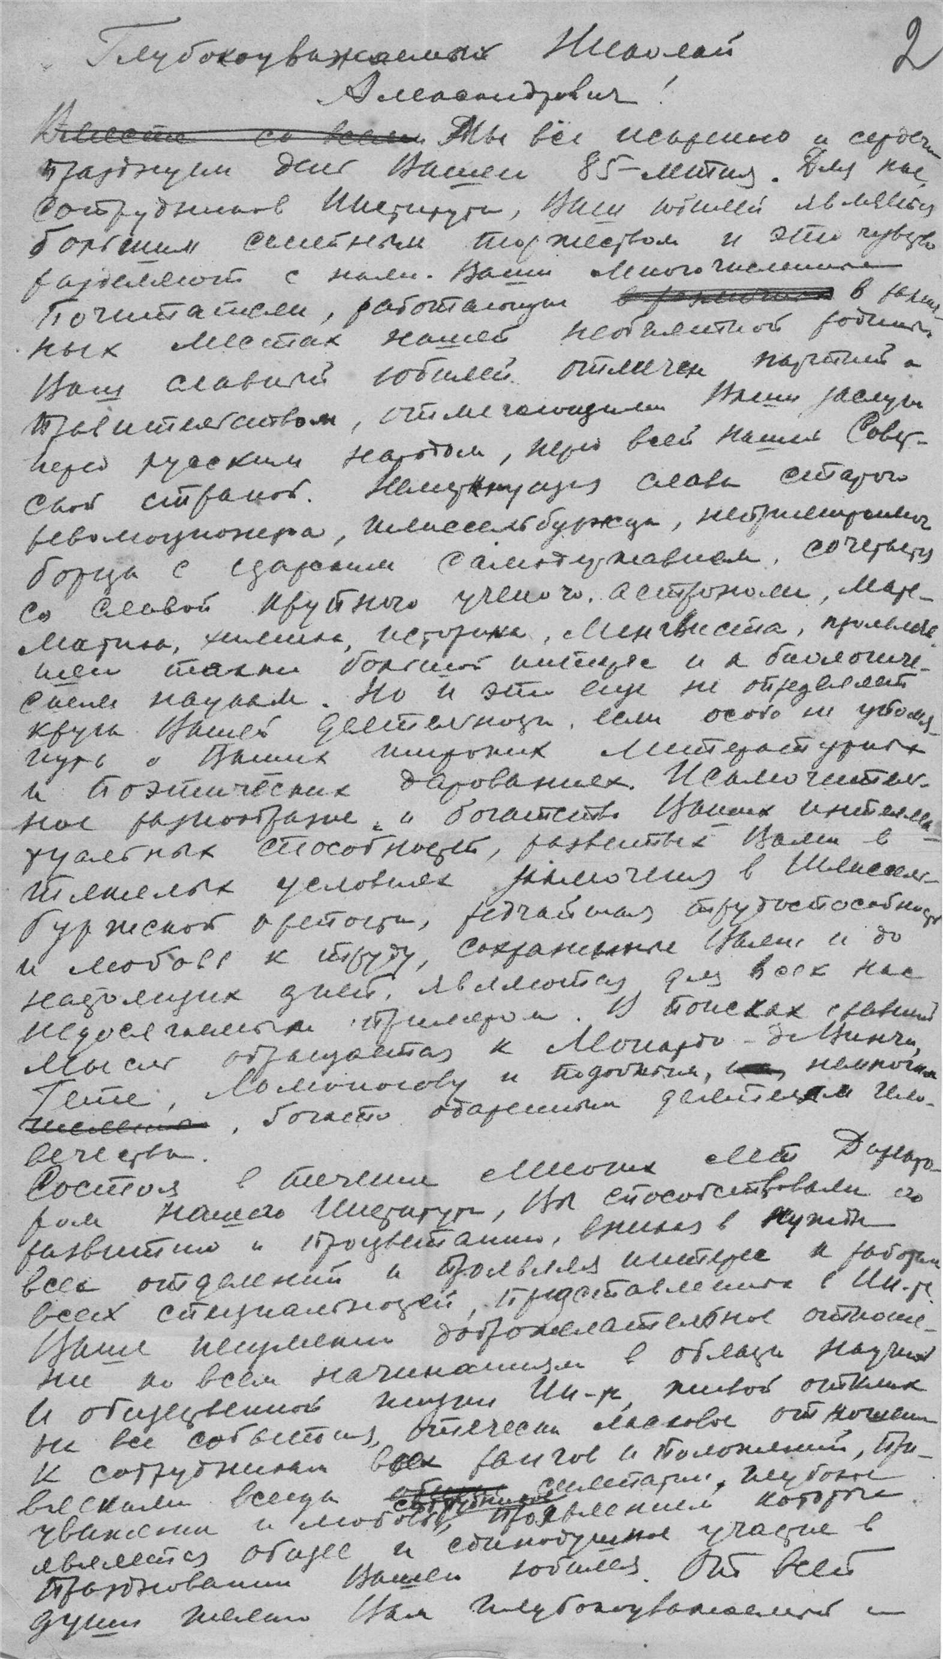 2
Глубокоуважаемый Николай
Александрович!
Вместе со всеми Мы все искренно и сердечно
празднуем день Вашего 85-летия. Для нас,
сотрудников Института, Ваш юбилей является
большим семейным торжеством и это чувство
разделяют с нами Ваши многочисленные
почитатели, работающие в раз-
ных местах нашей необъятной родины
Ваш славный юбилей отмечен партией и
правительством, отмечающими Ваши заслуги
перед русским народом, перед всей нашей Совет-
ской страной. слава старого
революционера, шлиссельбуржца, непримиримого
борца с царским самодержавием, сочетается
со славой крупного ученого, астронома, мате-
матика, химика, историка, лингвиста, проявляв-
шего также большой интерес и к биологиче-
ским наукам. Но и это еще не определяет
круга Вашей деятельности, если особо не упомя-
нуть о Ваших широких литературных
и поэтических дарованиях. Исключитель-
ное разнообразие и богатство Ваших интеллек-
туальных способностей, развитых Вами в
тяжелых условиях заключения в Шлиссель-
буржской крепости, редчайшая трудоспособность
и любовь к труду, сохраненные Вами и до
настоящих дней, являются для всех нас
недосягаемым примером. В поисках сравнений
мысль обращается к Леонардо-да-Винчи,
Гете, Ломоносову и подобным, немногим
, богато одаренным деятелям чело-
вечества.
Состоя в течении многих лет Директо-
ром нашего Института, Вы способствовали его
развитию и процветанию, вникая в нужды
всех отделений и проявляя интерес к работам
всех специальностей, представленных в Ин-те.
Ваше неизменно доброжелательное отноше-
ние ко всем начинаниям в области научной
и общественной жизни Ин-та, живой отклик
на все события, отечески ласковое отношение
к сотрудникам всех рангов и положений, при-
влекали всегда симпатии, глубокое
уважение и любовь, проявлением которых
является общее и единодушное участие в
праздновании Вашего юбилея. От всей
души желаю Вам глубокоуважаемый и